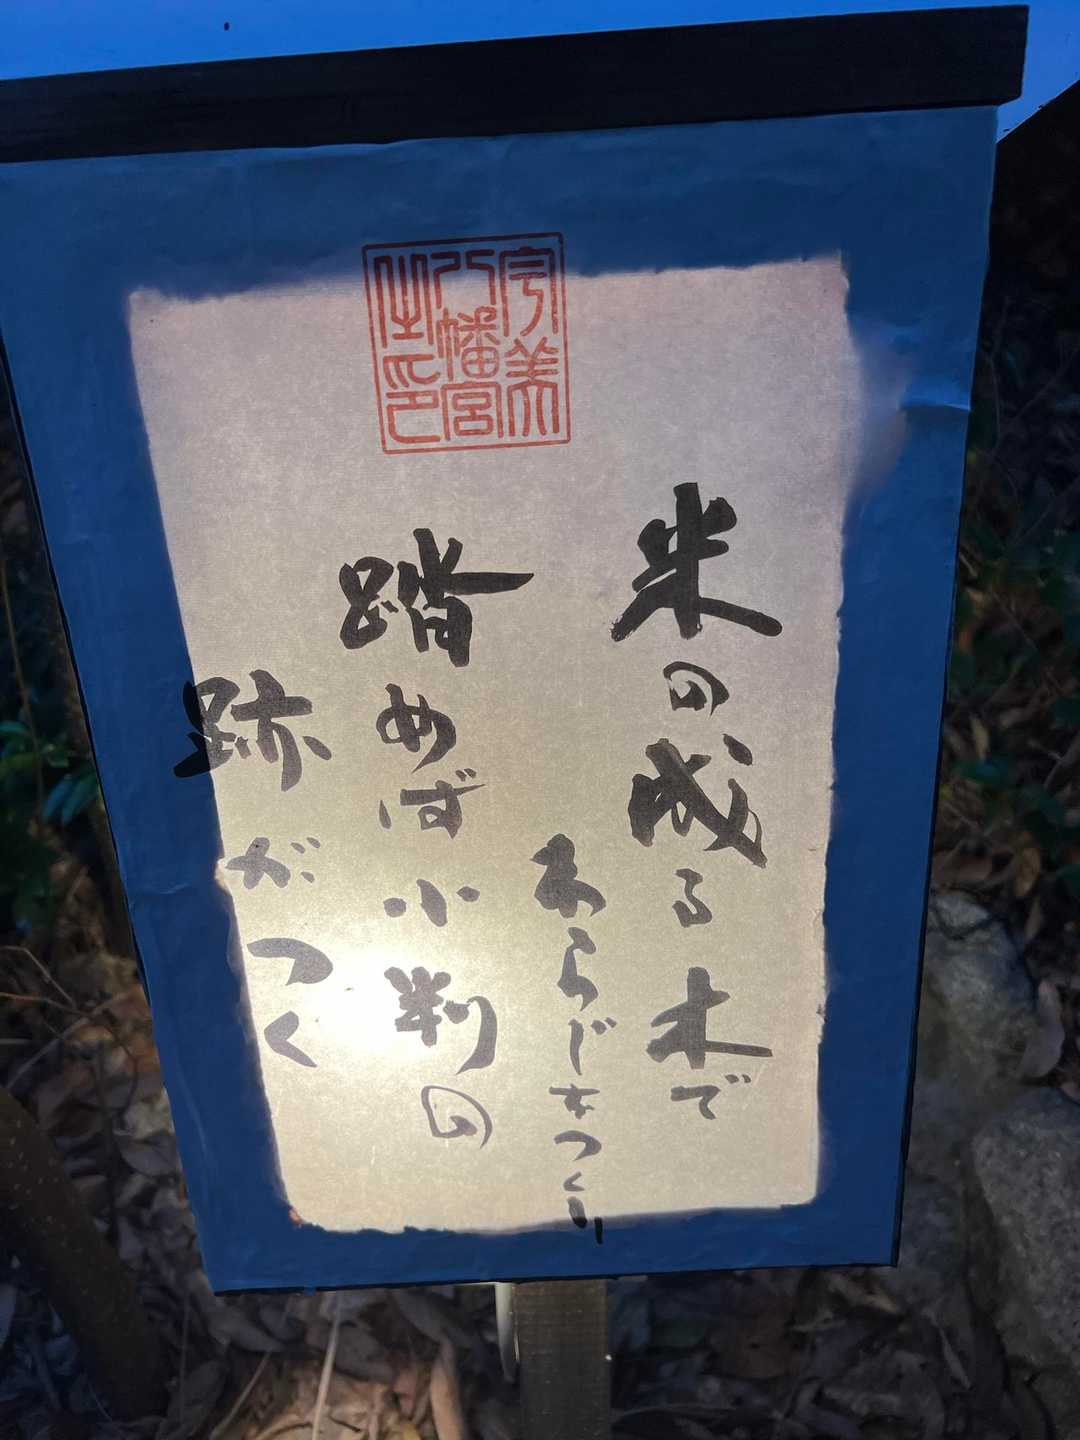 宇美
八幡宮
之印
米の成る木で
わらじをつくり
踏めば小判の
跡がつく